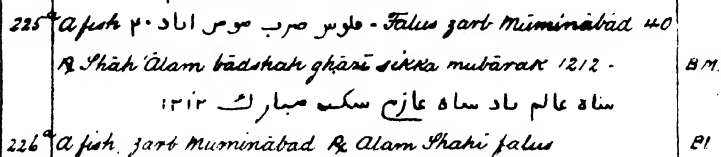 225ᵃ A fish فلوس صرب مومں اباد ۴۰ - Falus zarb Mūminābād 40
℞ Shāh 'Ālam bādshah ghāzī sikka mubārak 1212 - B M.
ساه عالم باد ساه عازی سکه مبارك ۱۲۱۲
226ᵃ A fish. zarb Muminābad ℞ Alam Shahi falus Pl